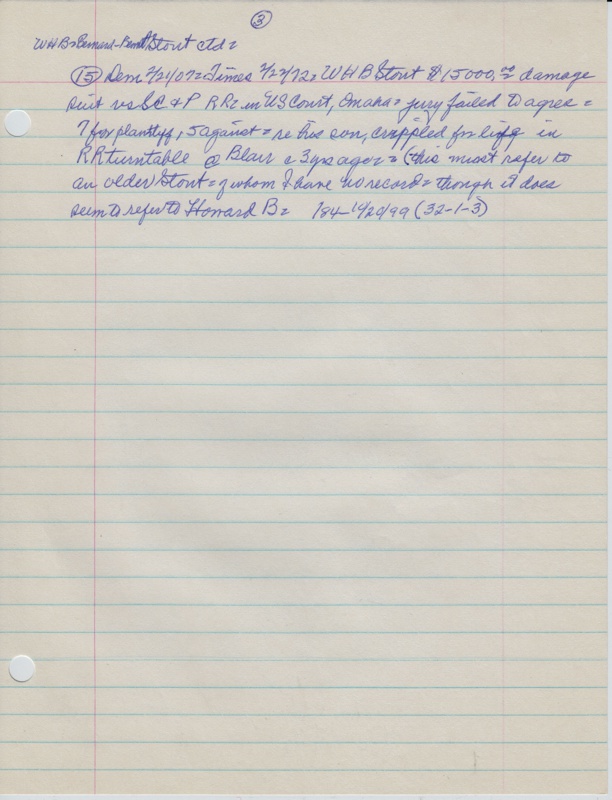 3
WHB = Bernard - Bernd Stout ctd =
15 Dem 2/21/07 = Times 2/27/72 = WHB Stout $15000.00 damage
suit vs SC & P RR = in US Court, Omaha = jury failed to agree =
7 for plantiff, 5 against = re his son, crippled for life in
RR turntable @ Blair c 3 yrs ago = = (this must refer to
an older Stout = of whom I have no record = though it does
seem to refer to Howard B = 184 - 10/20/99 (32-1-3)